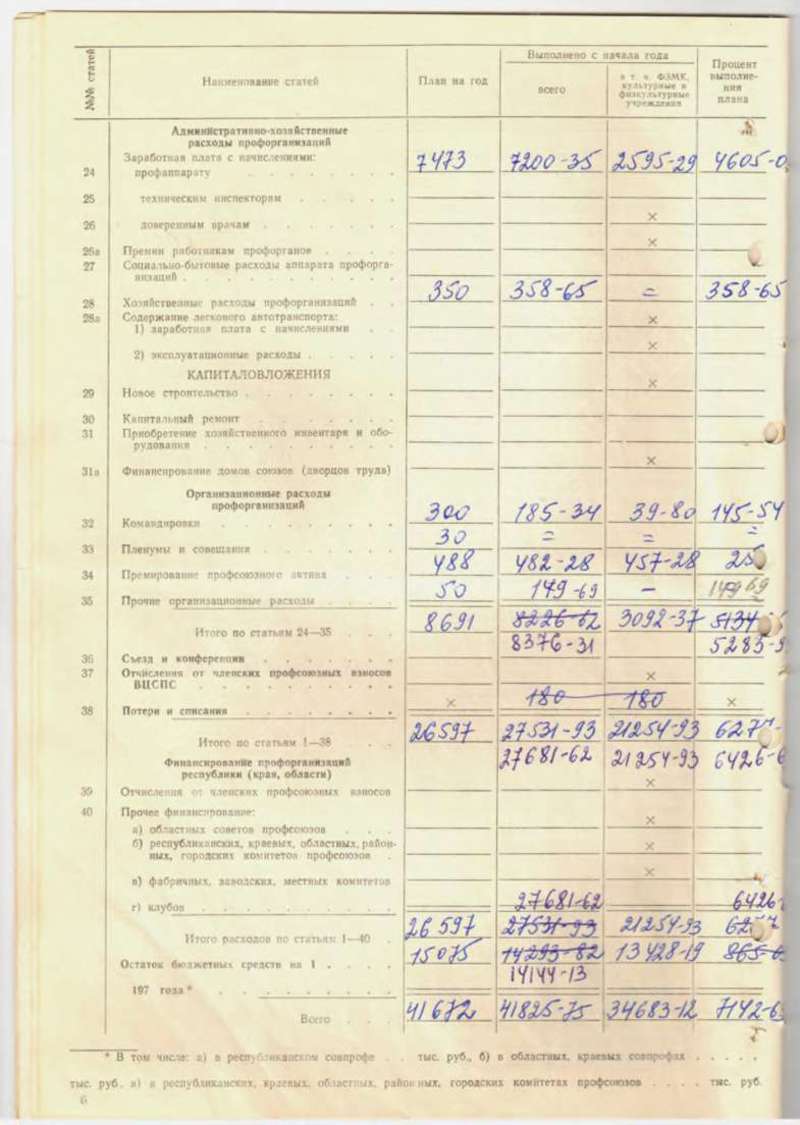 №№ статей
Наименование статей
План на год
Выполнено с начала года
всего
в т. ч. ФЗМК, культурные и физкультурные учреждения
Процент выполнения плана
Административно-хозяйственные
расходы профорганизаций
Заработная плата с начислениями:
24 профаппарату . . . . . . . . 7473 7200-35 2595-29 4605-0
25 техническим инспекторам . . . . .
26 доверенным врачам . . . . . . . ×
26а Премии работникам профорганов . . . . ×
27 Социально-бытовые расходы аппарата профорга-
низаций . . . . . . . . . .
28 Хозяйственные расходы профорганизаций . . 350 358-65 = 358-65
28а Содержание легкового автотранспорта:
1) заработная плата с начислениями . . ×
2) эксплуатационные расходы . . . . . ×
КАПИТАЛОВЛОЖЕНИЯ
29 Новое строительство . . . . . . . . ×
30 Капитальный ремонт . . . . . . .
31 Приобретение хозяйственного инвентаря и обо-
рудования . . . . . . . . . .
31а Финансирование домов союзов (дворцов труда) ×
Организационные расходы
профорганизаций
32 Командировки . . . . . . . . . 300 185-34 39-80 145-54
33 Пленумы и совещания . . . . . . . 30 = = =
34 Премирование профсоюзного актива . . . 488 482-28 457-28 25
35 Прочие организационные расходы . . . . 50 149-69 - 149-69
Итого по статьям 24—35 . . . 8691 8226-62 3092-37 5134
8376-31 5283-9
36 Съезд и конференции . . . . . . .
37 Отчисления от членских профсоюзных взносов
ВЦСПС . . . . . . . . . . ×
38 Потери и списания . . . . . . . . × 180 180 ×
Итого по статьям 1—38 . . 26597 27531-93 21254-93 6277
27681-62 21254-93 6426-6
Финансирование профорганизаций
республики (края, области)
39 Отчисления от членских профсоюзных взносов ×
40 Прочее финансирование:
а) областных советов профсоюзов . . . ×
б) республиканских, краевых, областных, район-
ных, городских комитетов профсоюзов . ×
в) фабричных, заводских, местных комитетов ×
г) клубов . . . . . . . . . . 27681-62 6426
Итого расходов по статьям 1—40 . 26597 27531-93 21254-93 6277
Остаток бюджетных средств на 1 . . . . 15075 14293-82 13428-19 865-6
14144-13
197 года * . . . . . . . . .
Всего . . . 41672 41825-75 34683-12 7142-6
* В том числе: а) в республиканском совпрофе . . тыс. руб., б) в областных, краевых совпрофах . . . . .
тыс. руб., в) в республиканских, краевых, областных, районных, городских комитетах профсоюзов . . . . тыс. руб.
6